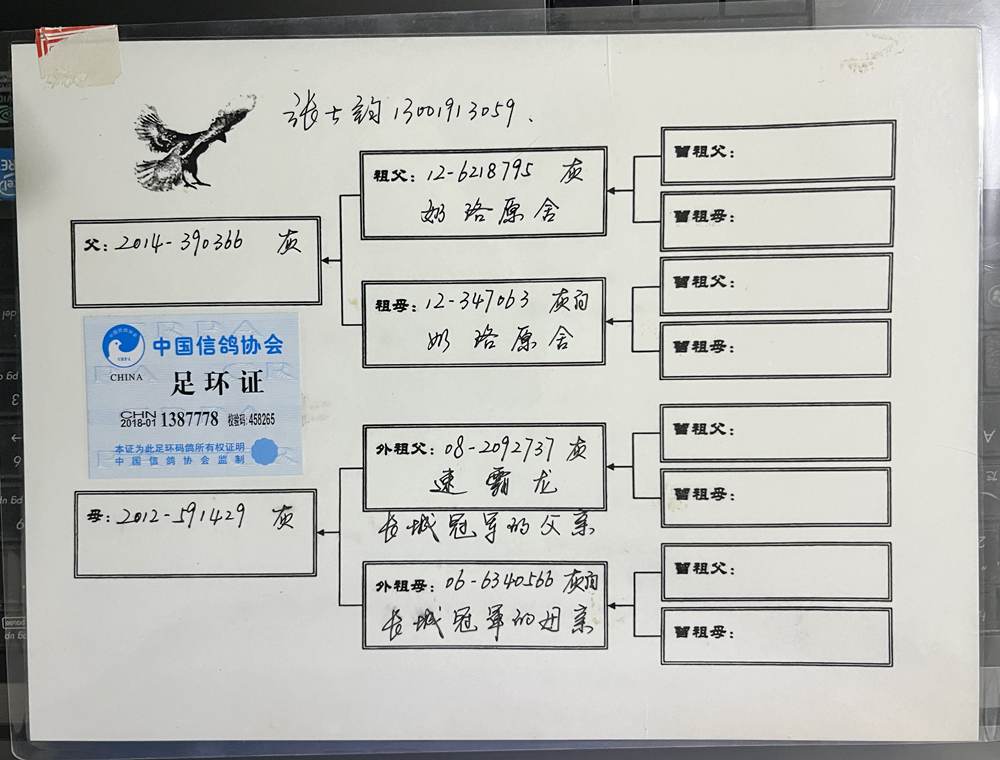 张士韵 13001913059.
父: 2014-390366 灰
祖父: 12-6218795 灰
奶路原舍
祖母: 12-347063 灰白
奶路原舍
曾祖父:
曾祖母:
曾祖父:
曾祖母:
中国信鸽协会
CHINA
足环证
CHN
2018-01 1387778 校验码: 458265
本证为此足环码鸽所有权证明
中国信鸽协会监制
母: 2012-591429 灰
外祖父: 08-2092737 灰
速霸龙
长城冠军的父亲
外祖母: 06-6340566 灰白
长城冠军的母亲
曾祖父:
曾祖母:
曾祖父:
曾祖母: